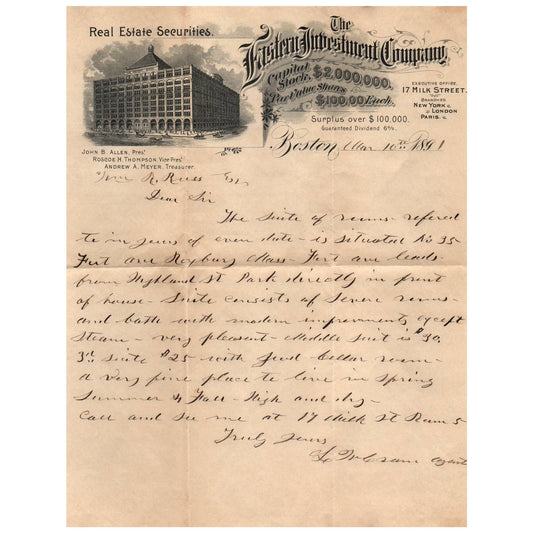 Real Estate Securities.
The
Eastern Investment Company,
Capital Stock, $2,000,000.
Par Value Shares $100.00 Each.
Surplus over $100,000.
Guaranteed Dividend 6%.
EXECUTIVE OFFICE,
17 MILK STREET.
BRANCHES
NEW YORK
LONDON
PARIS.
JOHN B. ALLEN, Pres't
ROSCOE H. THOMPSON, Vice Pres't
ANDREW A. MEYER, Treasurer.
Boston Mar 10th 1891
R. Russ Esq
Dear Sir
The Suite of rooms refered
to in yours of even date - is situated No 35
Fort Ave Roxbury Mass - Fort Ave leads
from Highland St Park directly in front
of house - Suite consists of Seven rooms
and bath with modern improvments except
Steam - very pleasant - Middle Suit is $30,
3rd suite $25 - with good Cellar room -
a very fine place to live in Spring
Summer & Fall - High and dry -
Call and see me at 17 Milk St Room 5
Truly yours
agent